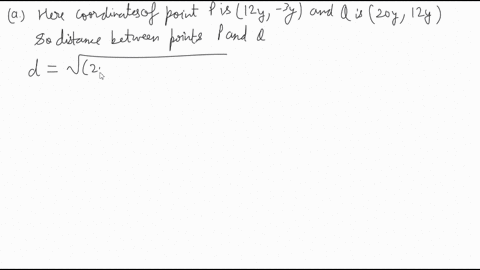 (a) Here coordinates of point P is (12y, -3y) and Q is (20y, 12y)
So distance between points P and Q
d = √(2